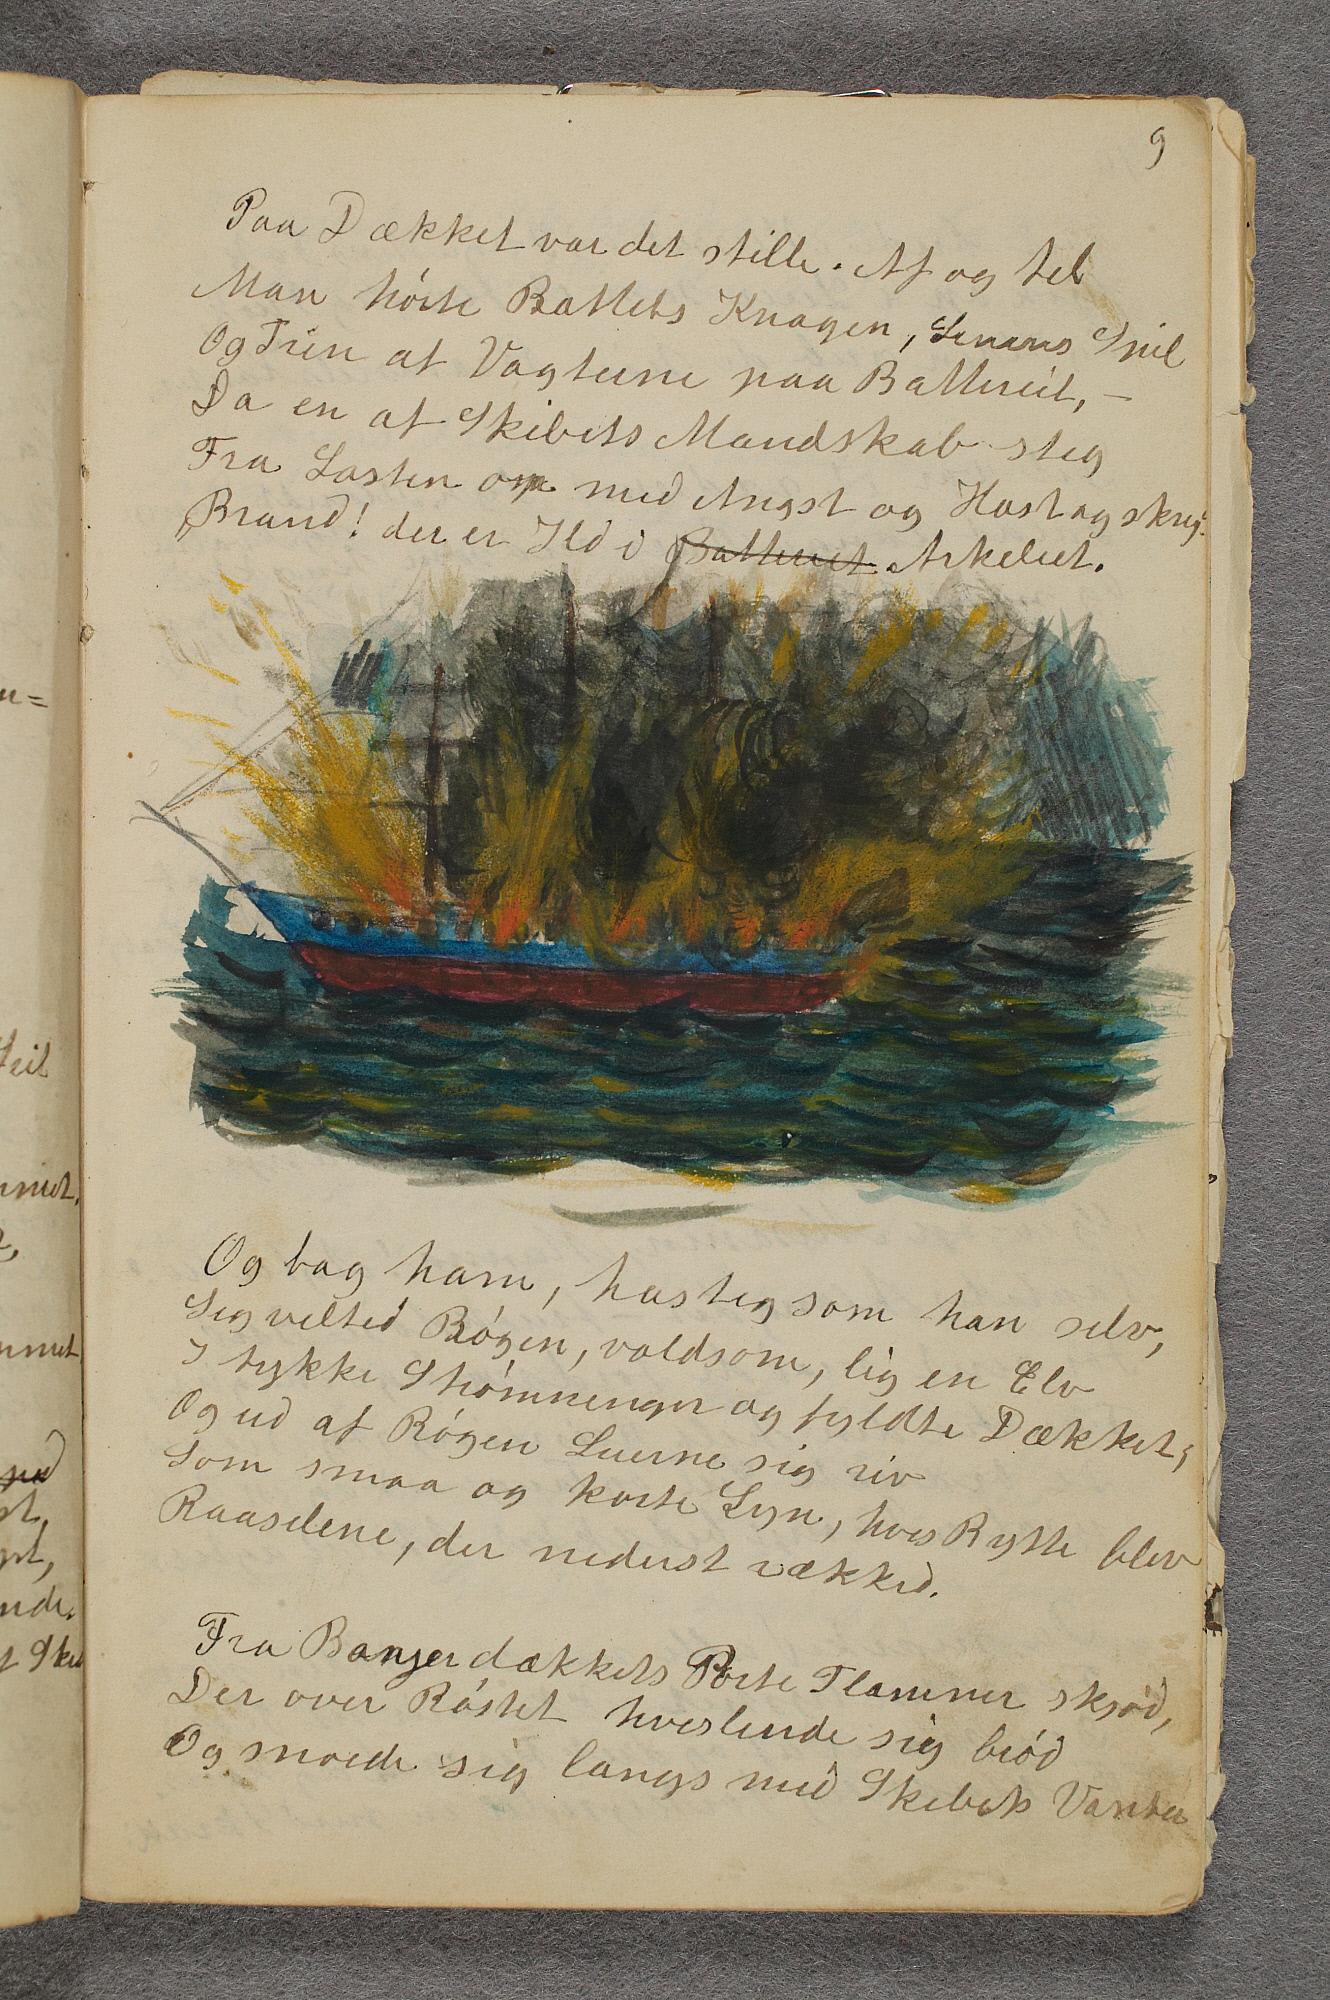 9
Paa Dækket var det stille. Af og til
Man hørte Battlets Knagen, Smaus Spil
Og Trin af Vagterne paa Batteriet, –
Da en af Skibets Mandskab steg
Fra Lasten op med Angst og Hast og skreg:
„Brand! der er Ild i Batteriet Arkeliet.
Og bag ham, hastig som han selv,
Sig velted Røgen, voldsom, lig en Elv
I tykke Strømninger og fyldte Dækket,
Og ud af Røgen Luerne sig rev
Som smaa og korte Lyn, hvis Bytte blev
Raaseilene, der nederst rækked.
Fra Banjerdækkets Porte Flammer skjød,
Der over Røstet hveslende sig brød
Og snoede sig langs med Skibets Vanter